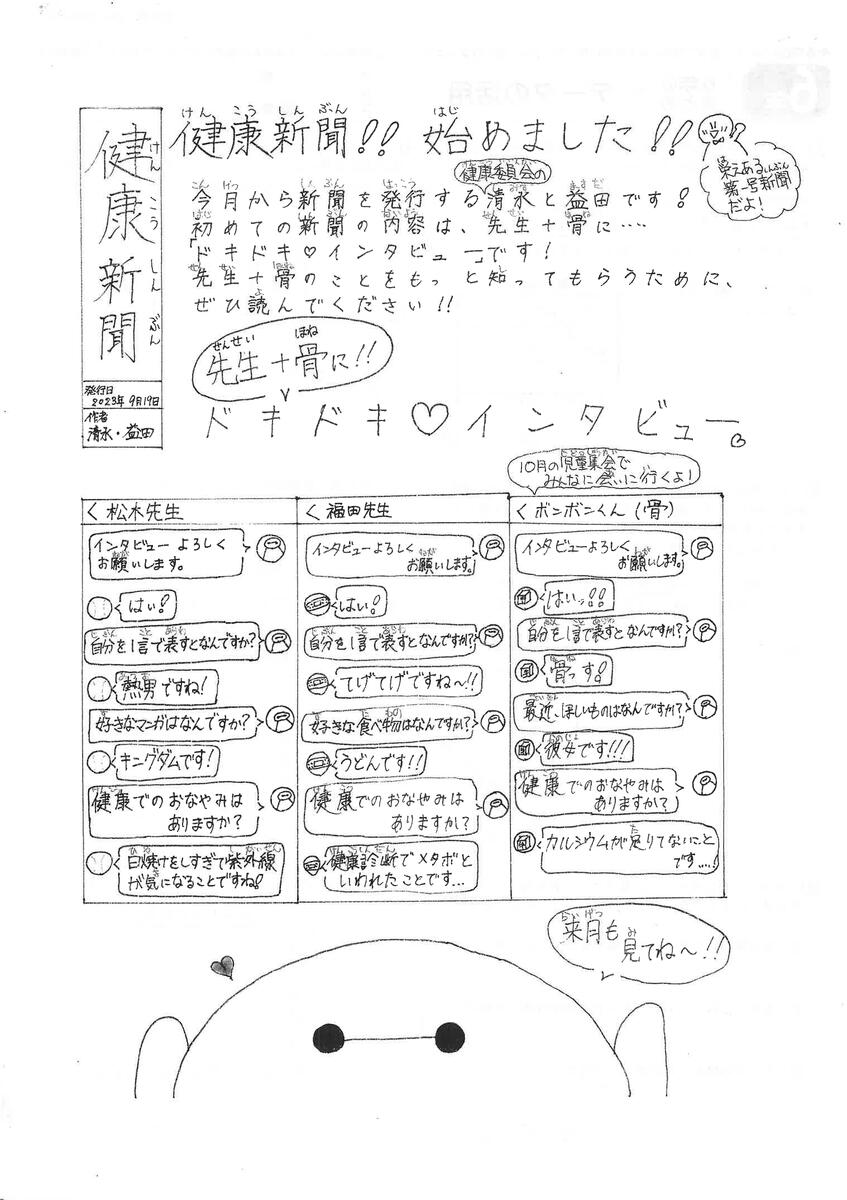 健康新聞
発行日
2023年 9月19日
作者
清水・益田
健康新聞!! 始めました!!
栄えある
第一号新聞
だよ!
健康委員会の
今月から新聞を発行する清水と益田です!
初めての新聞の内容は、先生+骨に‥‥
「ドキドキ♡インタビュー」です!
先生+骨のことをもっと知ってもらうために、
ぜひ読んでください!!
先生+骨に!!
ドキドキ♡インタビュー
10月の児童集会で
みんなに会いに行くよ!
く松木先生
インタビューよろしく
お願いします。
はい!
自分を1言で表すとなんですか?
熱男ですね!
好きなマンガはなんですか?
キングダムです!
健康でのおなやみは
ありますか?
日焼けをしすぎで紫外線
が気になることですね!
く福田先生
インタビューよろしく
お願いします。
はい!
自分を1言で表すとなんですか?
てげてげですね〜!!
好きな食べ物はなんですか?
うどんです!!
健康でのおなやみは
ありますか?
健康診断でメタボと
いわれたことです...
くボンボンくん(骨)
インタビューよろしく
お願いします。
はいッ!!
自分を1言で表すとなんですか?
骨っす!
最近、ほしいものはなんですか?
彼女です!!!
健康でのおなやみは
ありますか?
カルシウムが足りてないこと
です....!
来月も
見てね〜!!